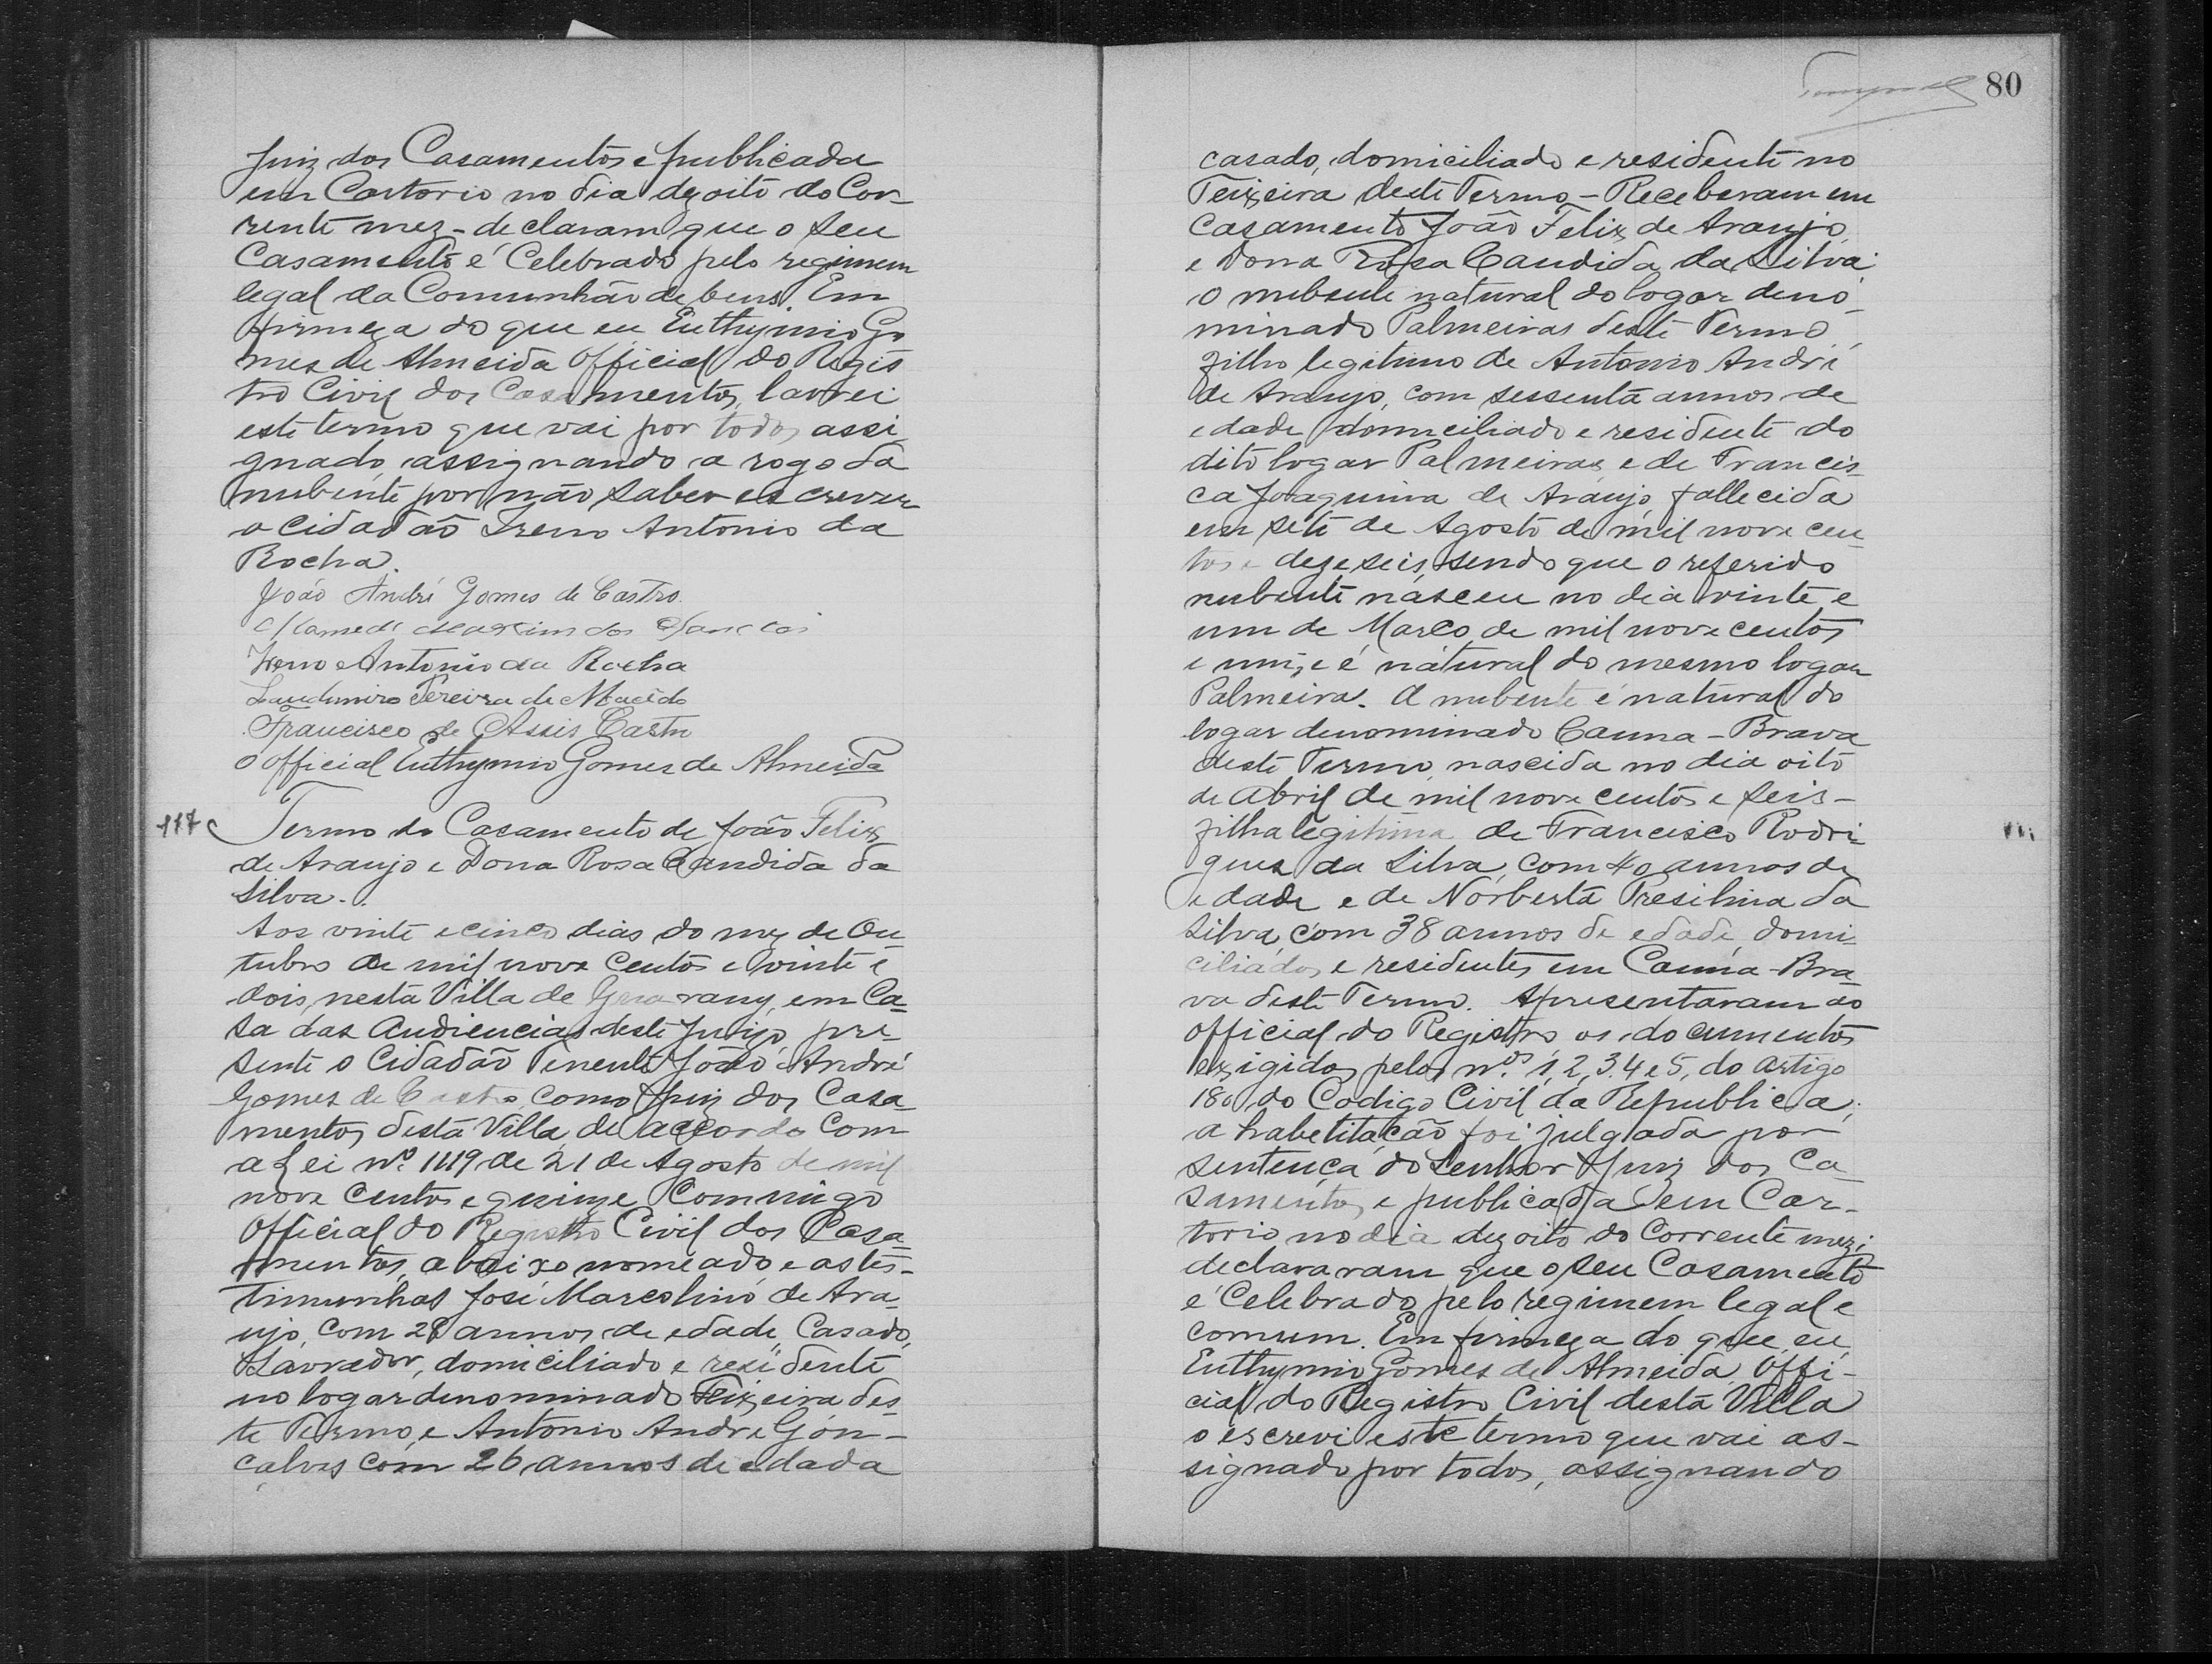 80
Juiz dos Casamentos e publicada
em Cartorio no dia dezoito do Cor-
rente mez - declaram que o seu
Casamento é Celebrado pelo regimem
legal da Comunhão de bens. Em
firmeza do que eu Euthymio Go
mes de Almeida Official do Regis
tro Civil dos Casamentos, lavrei
este termo que vai por todos assi
gnado, assignando a rogo da
nubente por não saber escrever
o cidadão Ireno Antonio da
Rocha.
João André Gomes de Castro.
dos Santos
Ireno Antonio da Rocha
Laudimiro Pereira de Macêdo
Francisco de Assis Castro
O official Euthymio Gomes de Almeida
Termo do Casamento de João Felix
de Araujo e Dona Rosa Candida da
Silva.
Aos vinte e cinco dias do mez de Ou-
tubro de mil nove centos e vinte e
dois, nesta Villa de Guarany, em Ca-
sa das Audiencias deste Juizo, pre-
sente o Cidadão Tenente João André
Gomes de Castro, como Juiz dos Casa-
mentos desta Villa de accordo com
a Lei nº 1119 de 21 de Agosto de mil
nove centos e quinze, Commigo
Official do Registro Civil dos Casa-
mentos, abaixo nomeado e as tes-
timunhas José Marcolino de Ara-
ujo, com 28 annos de edade, Casado,
Lavrador, domiciliado e residente
no logar denominado Teixeira des-
te Termo, e Antonio André Gon-
çalves com 26 annos de edada
casado, domiciliado e residente no
Teixeira deste Termo - Receberam em
Casamento João Felix de Araujo
e Dona Rosa Candida da Silva.
O nubente natural do logar deno-
minado Palmeiras deste Termo,
filho legitimo de Antonio André
de Araujo, com sessenta annos de
edade domiciliado e residente do
dito logar Palmeiras e de Francis-
ca Joaquina de Araujo, fallecida
em sete de Agosto de mil nove cen-
tos e dezeseis, sendo que o referido
nubente nasceu no dia vinte e
um de Março de mil nove centos
e um, e é natural do mesmo logar
Palmeira. A nubente é natural do
logar denominado Canna-Brava
deste Termo, nascida no dia oito
de Abril de mil nove centos e seis -
filha legitima de Francisco Rodri-
gues da Silva, com 40 annos de
edade e de Norberta Presilina da
Silva, com 38 annos de edade, domi-
ciliados e residentes em Canna-Bra-
va deste Termo. Apresentaram ao
official do Registro os documentos
exigidos pelos nos 1, 2, 3. 4 e 5, do artigo
180 do Codigo Civil da Republica;
a habelitação foi julgada por
sentença do Senhor Juiz dos Ca-
samentos, e publicada em Car-
torio no dia dezoito do Corrente mez;
declararam que o seu Casamento
é Celebrado pelo regimem legal e
comum. Em firmeza do que, eu,
Euthymio Gomes de Almeida Offi-
cial do Registro Civil desta Villa
o escrevi este termo que vai as-
signado por todos, assignando